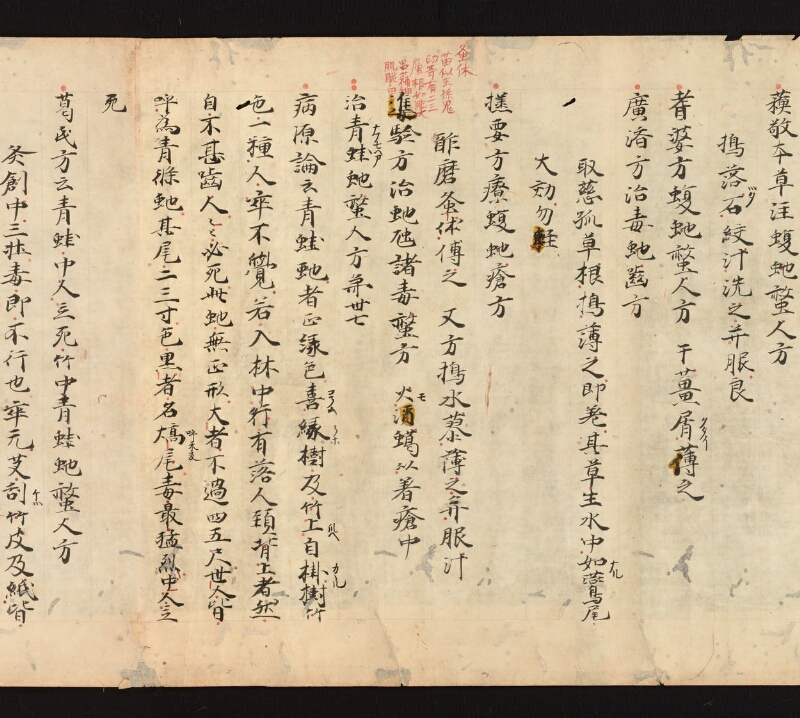 蘓敬本草注蝮虵螫人方
搗落石絞汁洗之并服良
耆婆方蝮虵螫人方 干薑屑薄之
廣済方治毒虵齧方
取慈孤草根搗薄之即差其草生水中如鷰尾
大効勿軽
撛要方療蝮虵瘡方
酢磨蚤休傅之 又方搗水慕薄之并服汁
蚤休
隻験方治虵虺諸毒螫方 火消蠟以著瘡中
治青蛙虵螫人方第卅七
病原論云青蛙虵者正緑色喜縁樹及竹上自掛樹竹
色一種人卒不覺若入林中行有落人頚背上者然
自不甚齧人々必死此虵無正形大者不過四五尺世人皆
呼為青條虵其尾二三寸色黒者名熇尾毒最猛烈中人立
死
葛氏方云青蛙中人立死竹中青蛙虵螫人方
灸創中三壮毒即不行也卒无艾刮竹皮及紙皆